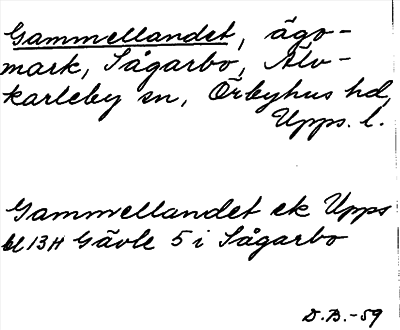 Gammellandet, ägo-
mark, Sågarbo, Älv-
karleby sn, Örbyhus hd,
Upps. l.
Gammellandet ek Upps
bl 13H Gävle 5 i Sågarbo
D.B.-59